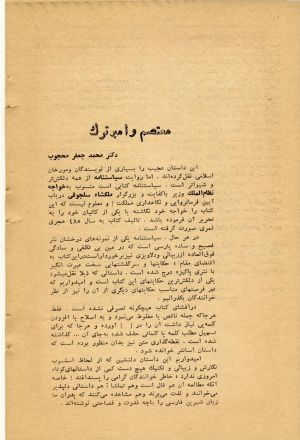 معتصم و امیر ترک
دکتر محمد جعفر محجوب
این داستان عجیب را بسیاری از نویسندگان ومورخان
اسلامی نقل کرده‌اند . اما روایت سیاستنامه از همه دلکش‌تر
و شیواتر است . سیاستنامه کتابی است منسوب به خواجه
نظام‌الملک وزیر باکفایت و بزرگوار ملکشاه سلجوقی درباب
آیین فرمانروایی و نگاهداری مملکت ؛ و معلوم نیست که این
کتاب را خواجه خود نگاشته یا یکی از کاتبان خود را به
تحریر آن فرموده باشد . تالیف کتاب به سال ۴۸۵ هجری
قمری صورت گرفته است .
در هر حال . سیاستنامه یکی از نمونه‌های درخشان نثر
فصیح و ساده پارسی است که در عین بی تکلفی و سادگی
فوق‌العاده از زیبائی ودلاویزی نیز برخوردار است . در این کتاب به
اقتضای مقام ، حکایتها و سرگذشتهایی سخت عبرت انگیز
با نثری پاکیزه درج شده است . داستانی که ذیلا نقل میشود
یکی از دلکش‌ترین حکایتهای این کتاب است و امیدواریم که
در فرصتهای مناسب حکایتهای دیگری از آن را نیز از نظر
خوانندگان بگذرانیم .
در اقشای کتاب هیچگونه تصرفی نشده است . فقط
هرجا که جمله ناقص یا مغلوط می‌نمود و به اصلاح یا افزودن
کلمه‌یی نیاز داشت آن را در [ ] آورده و هرجا که برای
تسهیل مطلب کلمه یا کلماتی حذف شده به‌جای آن ...
شده است . نقطه‌گذاری متن نیز بدان منظور بوده است که
داستان آسانتر خوانده شود
امیدواریم این داستان دلنشین که از لحاظ اسلوب
نگارش و زیبائی و تکنیک هیچ دست کمی از داستانهای کوتاه
امروزی ندارد ، خاطر خوانندگان گرامی را پسند افتد ؛ خاصه
آنکه مطالعه آن هم فال است وهم تماشا : هم داستانی دلپذیر
می‌خوانند و لذت می‌برند وهم مشاهده می‌کنند که پدران ما
زبان شیرین فارسی را باچه قدرت و فصاحتی نوشته‌اند .